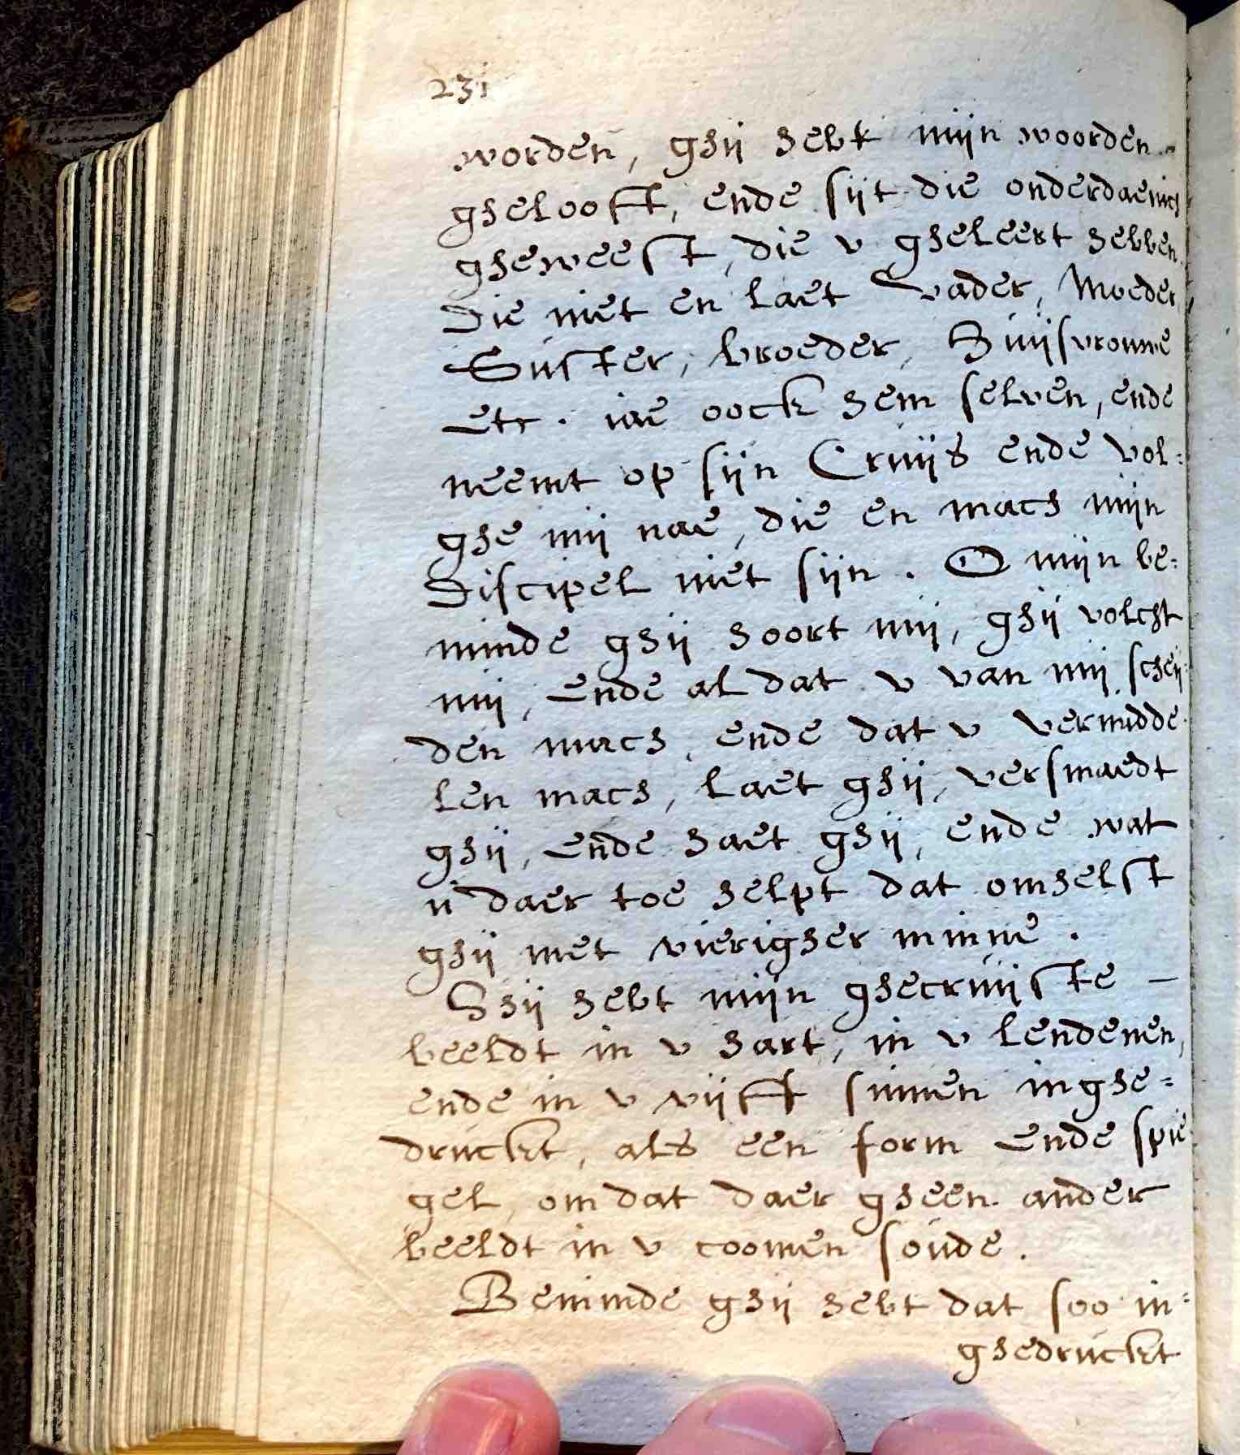 231
worden, ghij hebt mijn woorden
ghelooft, ende sijt die onderdaenich
gheweest, die v gheleert hebben.
Die niet en laet Vader, Moeder,
Suster, broeder, Huijsvrouwe
etc. iae oock hem selven, ende
neemt op sijn Cruijs ende vol:
ghe mij nae, die en mach mijn
Discipel niet sijn. O mijn be:
minde ghij hoort mij, ghij volcht
mij, ende al dat v van mij scheij
den mach, ende dat v vermidde
len mach, laet ghij, versmaedt
ghij, ende haet ghij, ende wat
ú daer toe helpt dat omhelst
ghij met vierigher minne.
Ghij hebt mijn ghecruijste –
beeldt in v hart, in v lendenen,
ende in v vijff sinnen inghe=
druckt, als een form ende spie
gel, om dat daer gheen ander
beeldt in v coomen soude.
Beminde ghij hebt dat soo in=
ghedruckt